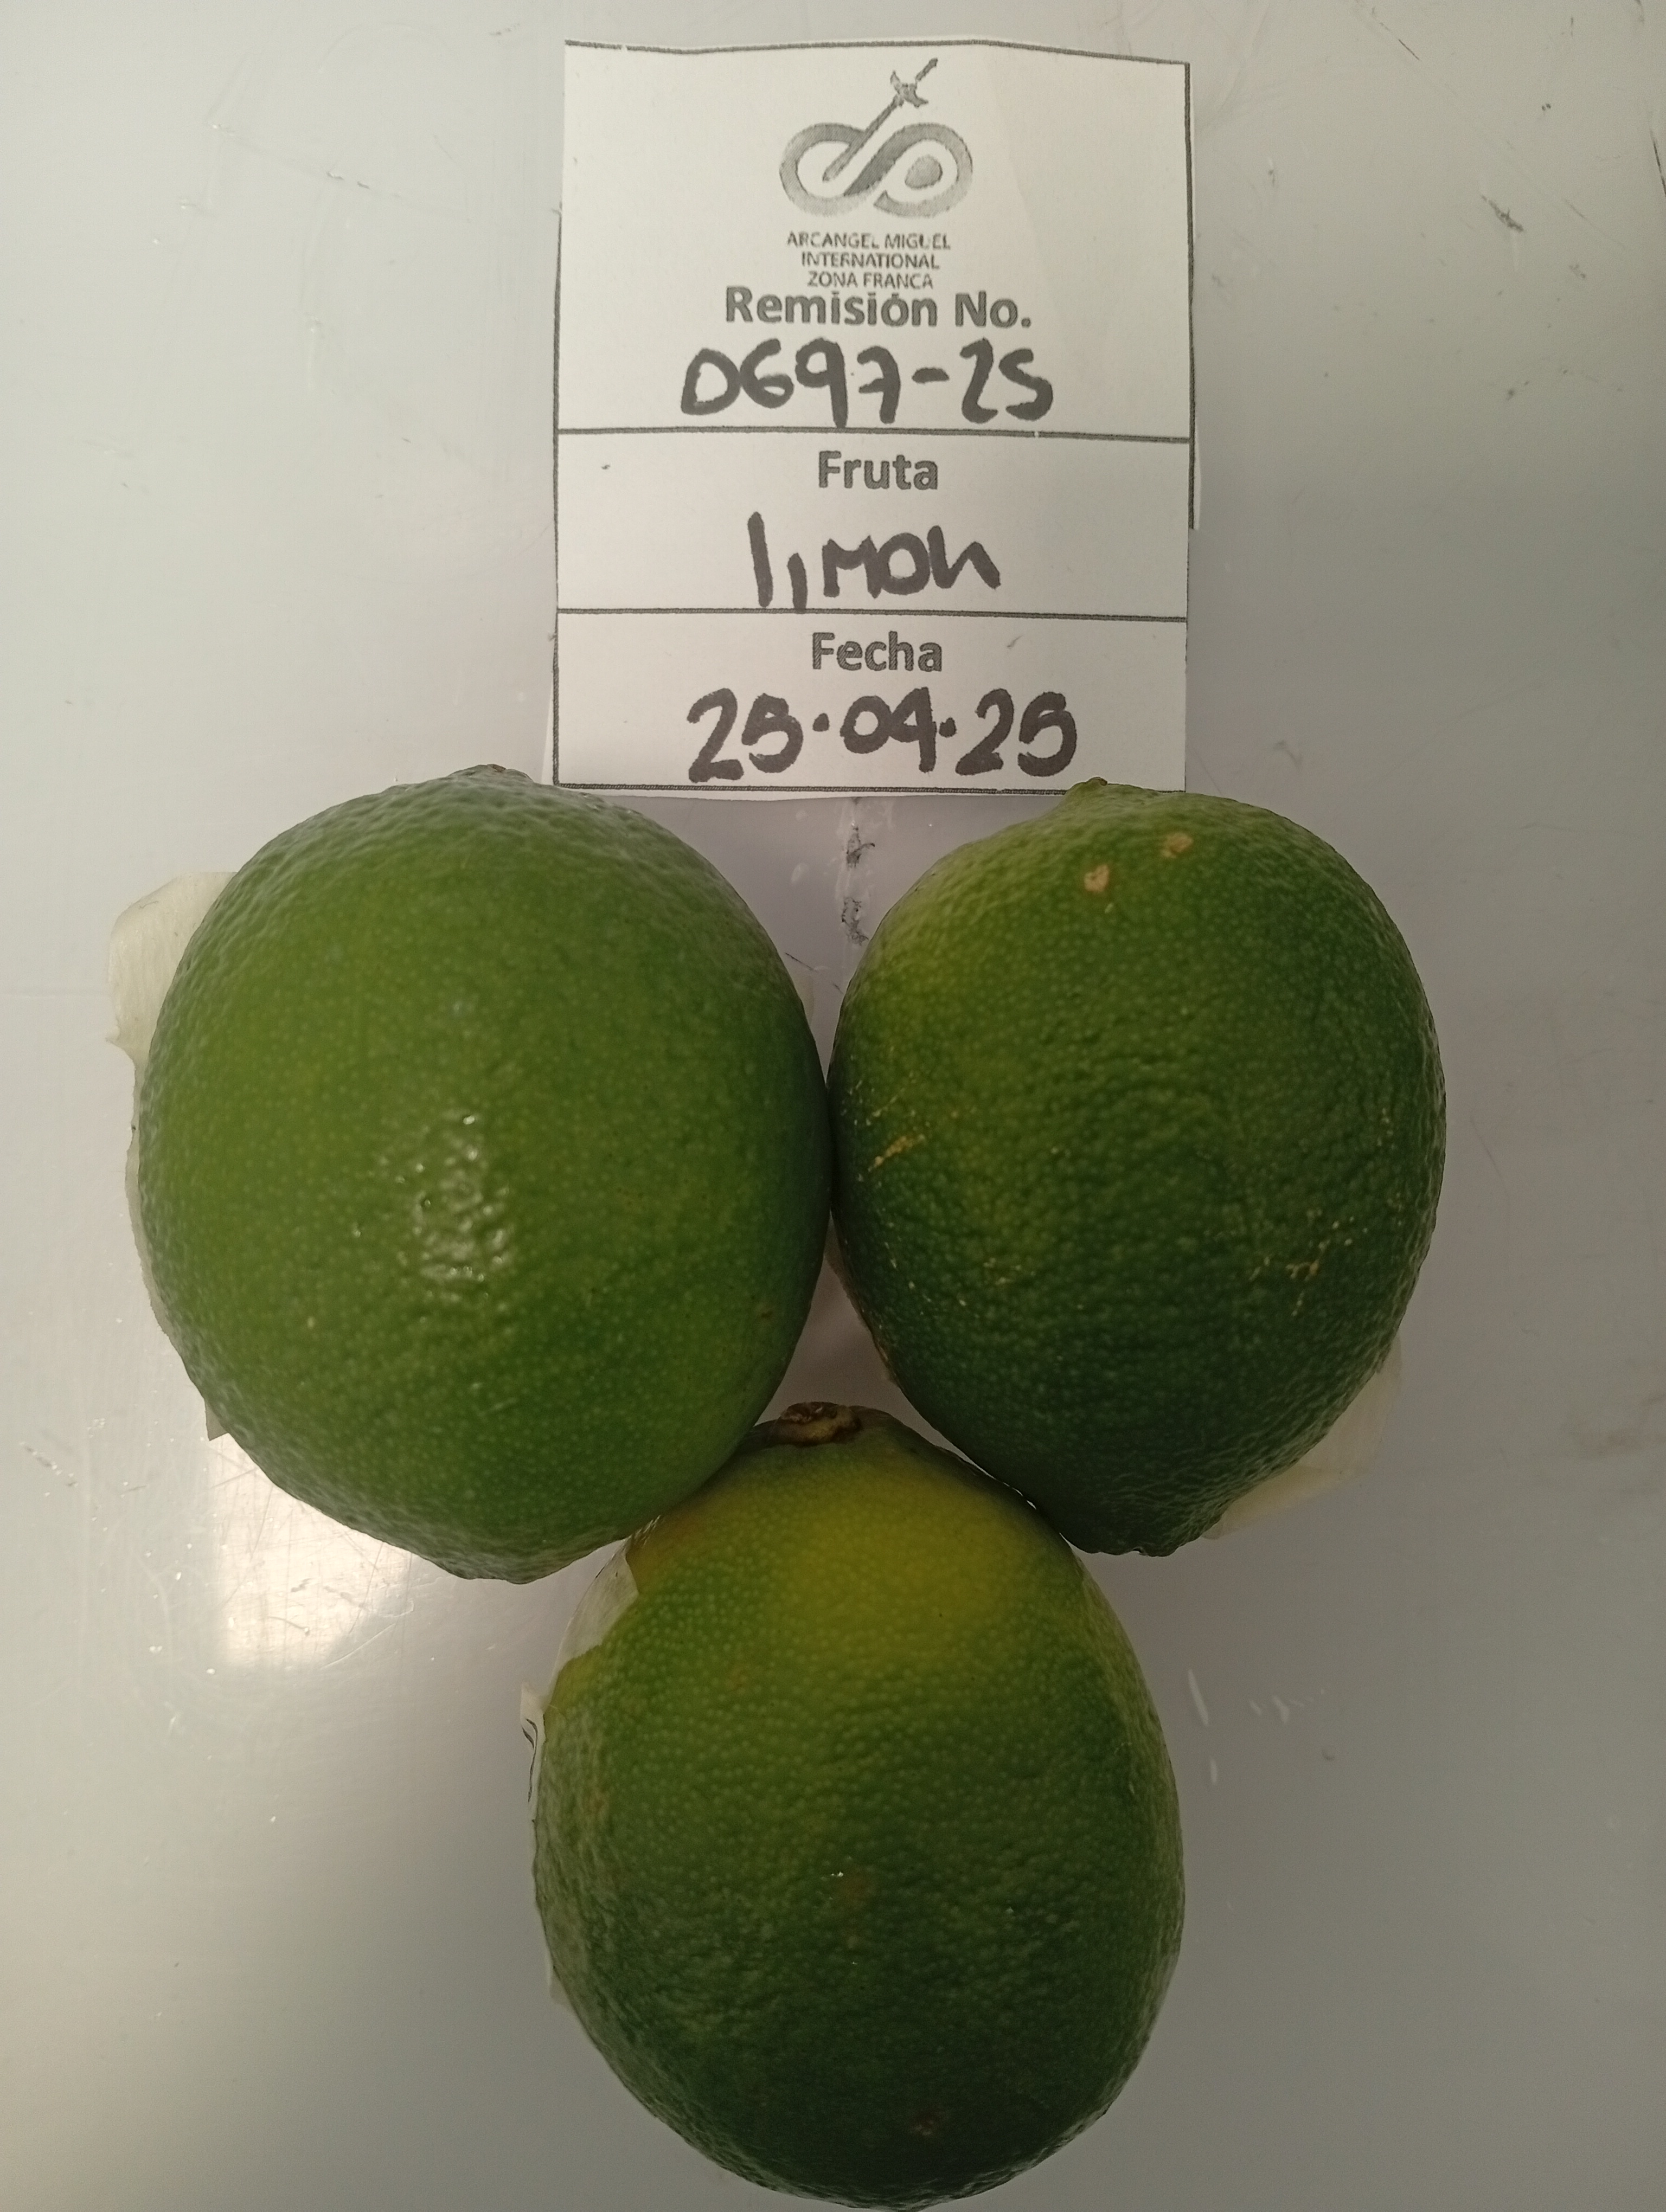 ARCANGEL MIGUEL
INTERNATIONAL
ZONA FRANCA
Remisión No.
0697-25
Fruta
limon
Fecha
25.04.25